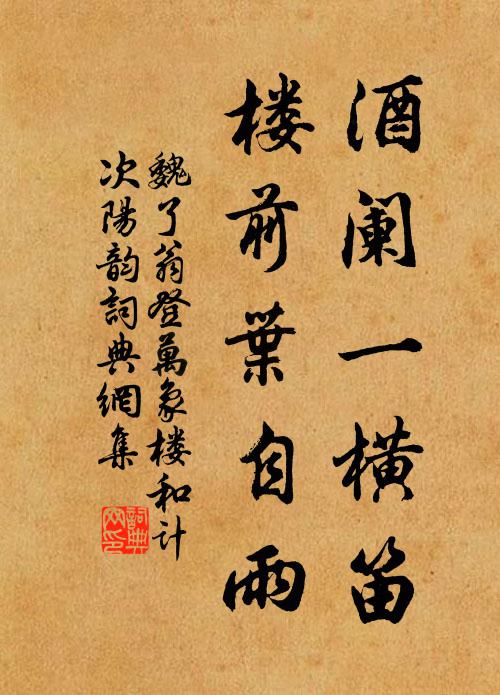 酒阑一横笛
楼前葉自雨
魏了翁登萬象楼和计
次陽韵詞典網集